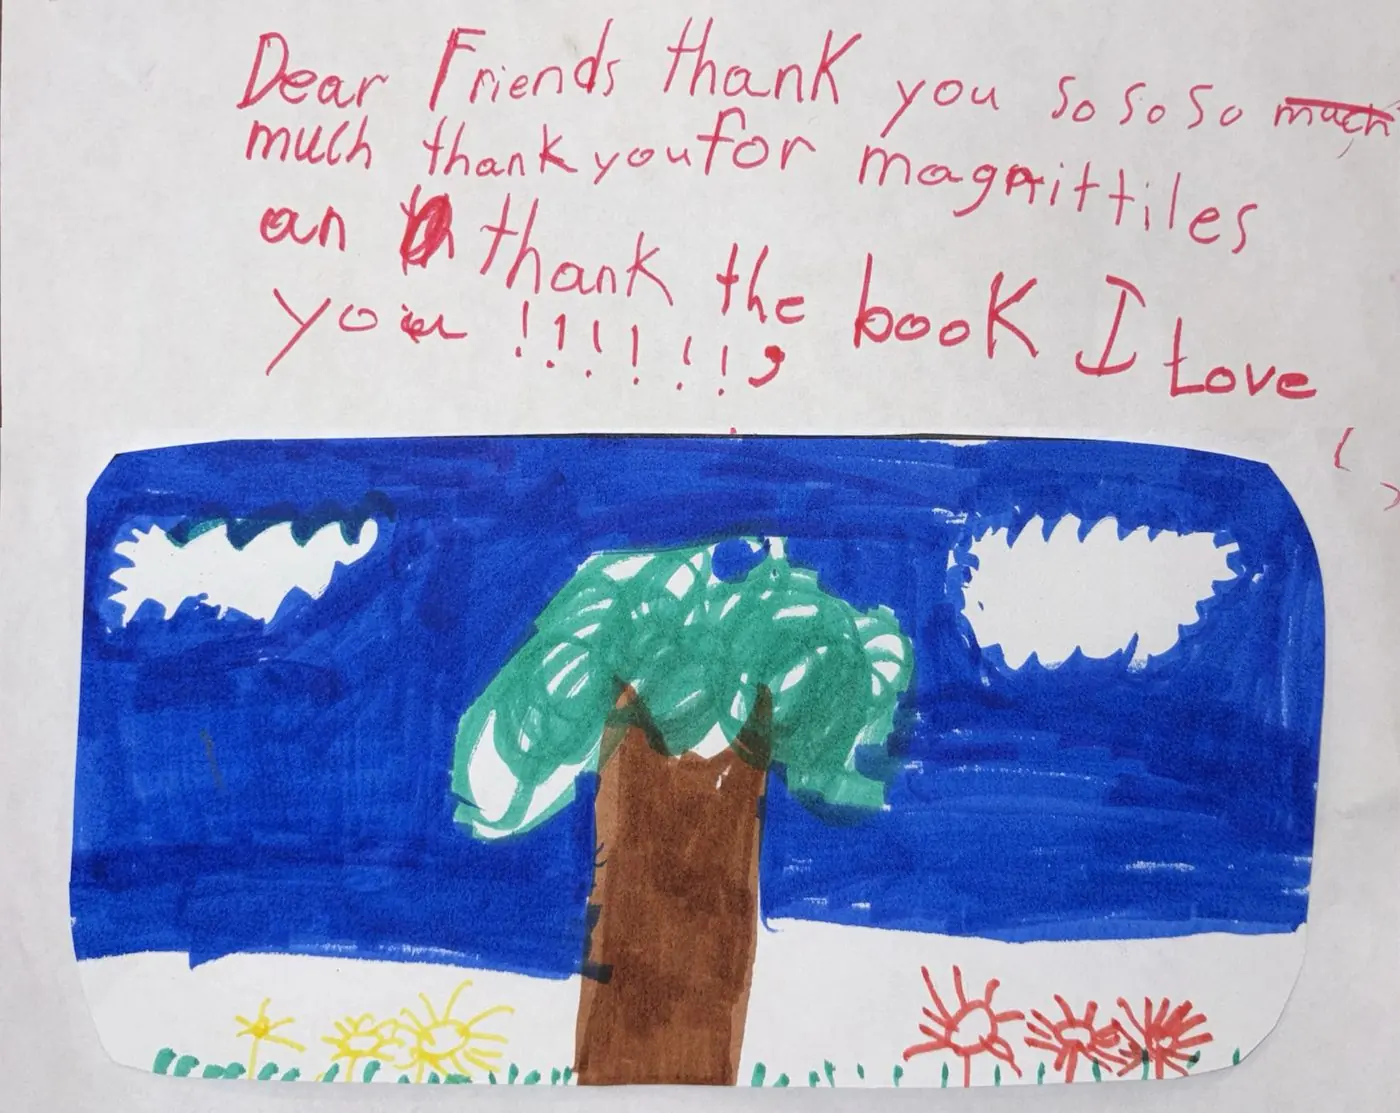 Dear Friends thank you so so so much
much thank you for magnittiles
an thank the book I Love
you !!!!!!,